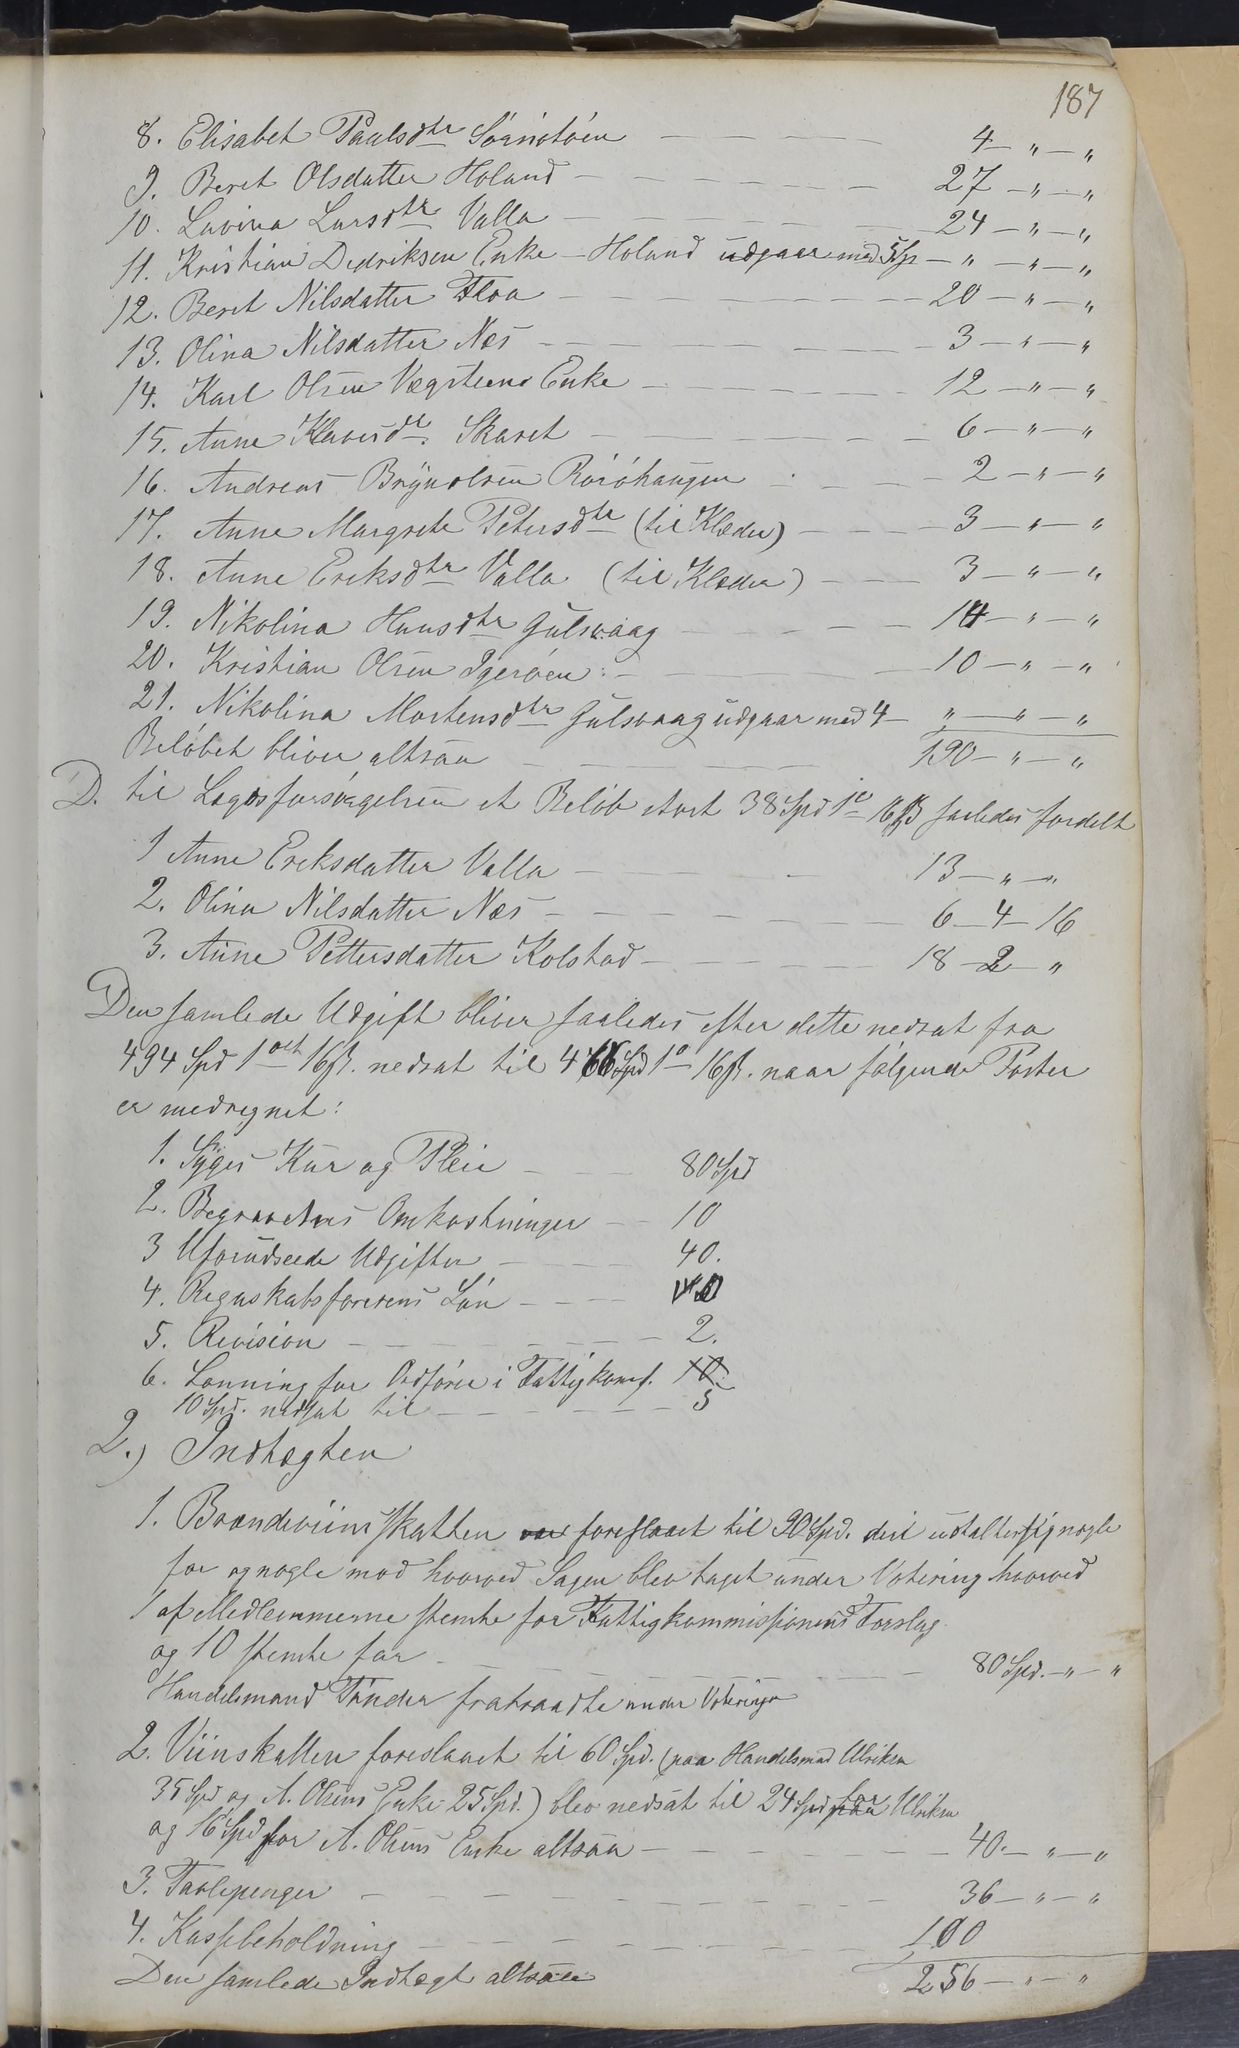 187
8. Elisabet Paulsdtr Sörnstöen — — — 4 — „ — „
9. Beret Olsdatter Holand — — — 27 — „ — „
10. Lavina Larsdtr Valla — — — 24 — „ — „
11. Kristian Dedriksen Enke — Holand udgaar med 5 Sp — „ — „ — „
12. Beret Nilsdatter Floa — — — 20 — „ — „
13. Olina Nilsdatter Næs — — — 3 — „ — „
14. Karl Olsen Vegsteens Enke — — — 12 — „ — „
15. Anne Klausdtr. Skaret — — — 6 — „ — „
16. Andreas Brynolsen Röröhaugen — — — 2 — „ — „
17. Anne Margrete Petersdtr (til Klæder) — — 3 — „ — „
18. Anne Eriksdtr Valla (til Klæder) — — 3 — „ — „
19. Nikolina Hansdtr Gulsvaag — — — 14 — „ — „
20. Kristian Olsen Igeröen — — — 10 — „ — „
21. Nikolina Mortensdtr Gulsvaag udgaar med 4 — „ — „ — „
Belöbet bliver altsaa — — — 190 — „ — „
D. til Lægdsforsörgelsen et Belöb stort 38 Spd 1o 16 ß saaledes fordelt
1 Anne Ereksdatter Valla — — — 13 — „ — „
2. Olina Nilsdatter Næs — — — 6 — 4 — 16
3. Anne Pettersdatter Kolstad — — — 18 — 2 — „
Den samlede Udgift bliver saaledes efter dette nedsat fra
494 Spd 1 ort 16 ß. nedsat til 466 Spd 1o 16 ß. naar fölgende Poster
er medregnet:
1. Syges Kur og Pleie — — 80 Spd
2. Begravelses Omkostninger — — 10
3 Uforudseede Udgifter — — 40.
4. Regnskabsförerens Lön — — —
5. Revision — — — 2.
6. Lönning for Ordförer i Fattigkoms. 10.
10 Spd. nedsat til — — — 5
2.) Indtægten
1. Brændeviinsskatten var foreslaaet til 90 Spd. deri udtalte sig nogle
for og nogle mod hvorved Sagen blev taget under Votering hvorved
1 af Medlemmerne stemte for Fattigkommissionens Forslag
og 10 stemte for — — — 80 Spd. — „ — „
Handelsmand Tönder fratraadte under Voteringen
2. Viinskatten foreslaaet til 60 Spd. (paa Handelsmand Ulriksen
35 Spd og A. Olsens Enke 25 Spd.) blev nedsat til 24 Spd for Ulriksen
og 16 Spd for A. Olsens Enke altsaa — — — 40. — „ — „
3. Tavlepenger — — — 36 — „ — „
4. Kassebeholdning — — — 100
Den samlede Indtægt altsaa 256 — „ — „